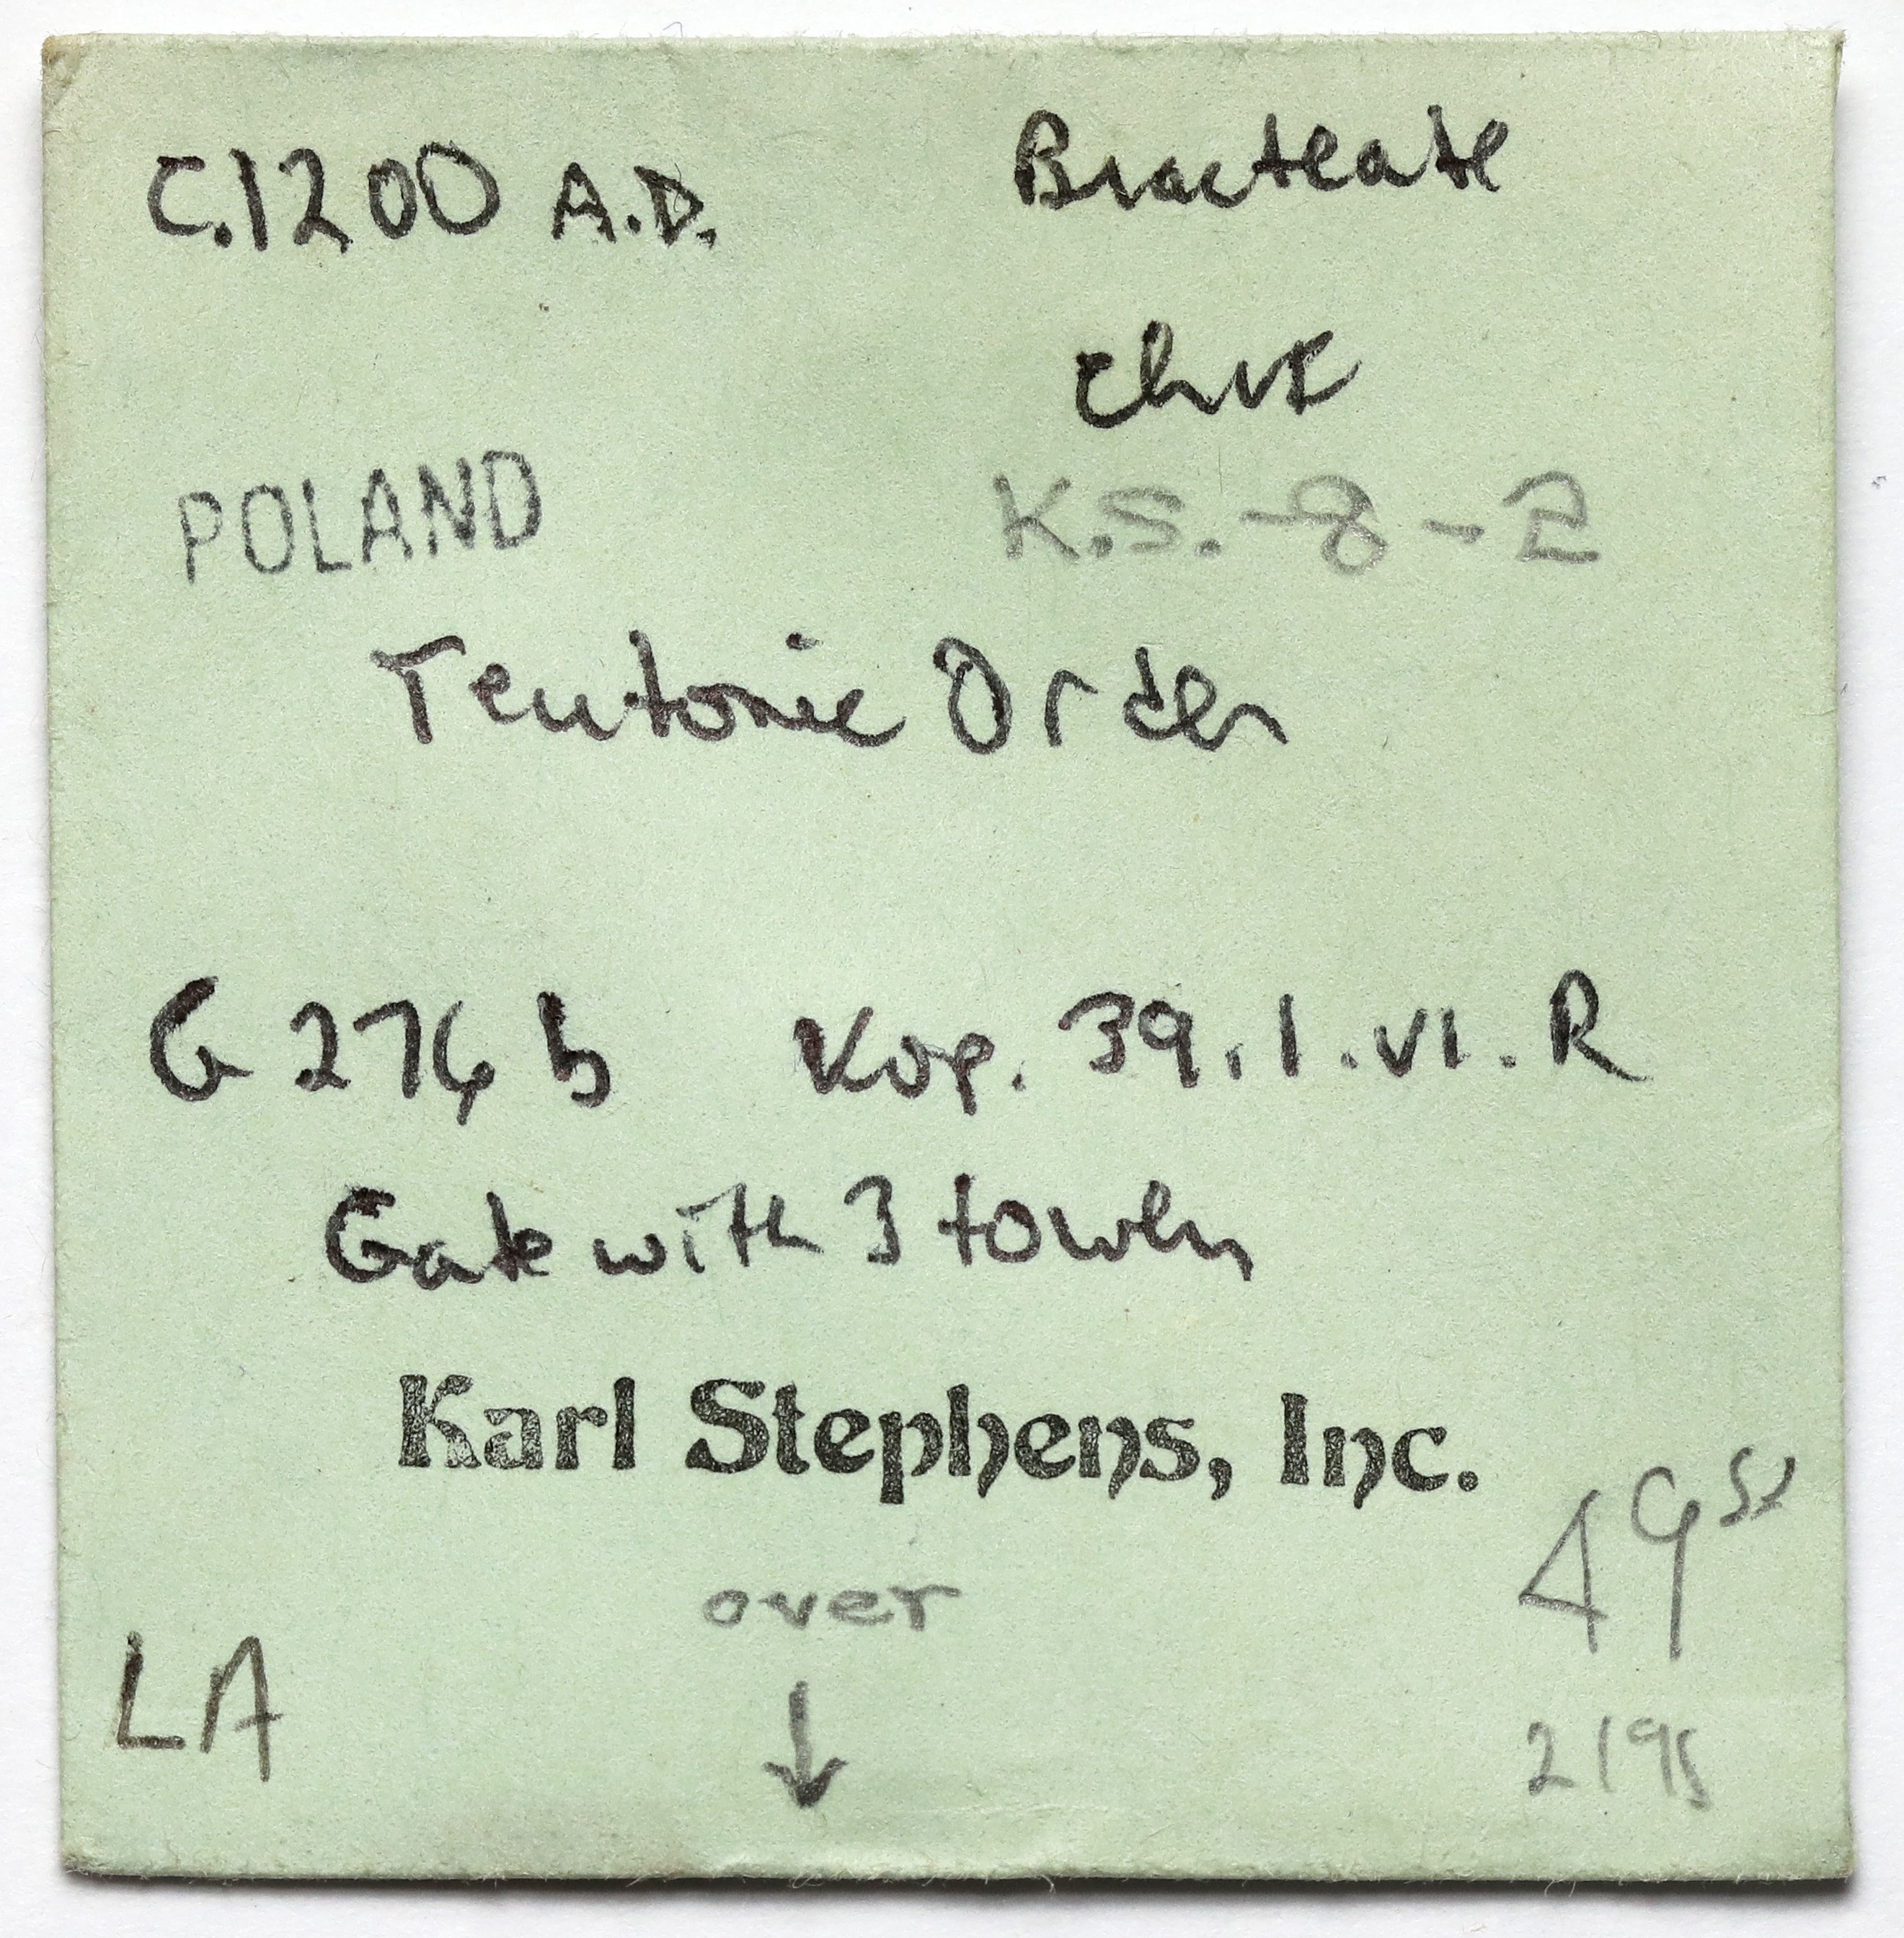 C.1200 A.D. Bracteate
Ch VF
POLAND K.S.-8-2
Teutonic Order
G 276 b Kop. 39.1.VI.R
Gate with 3 towers
Karl Stephens, Inc.
over
49
LA ↓